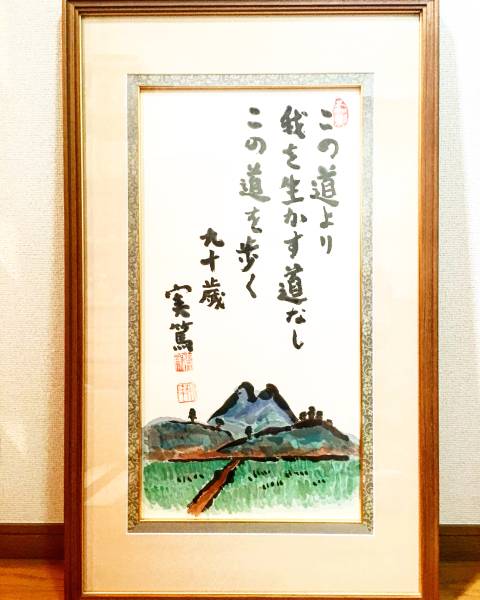 この道より
我を生かす道なし
この道を歩く
九十歳
実篤